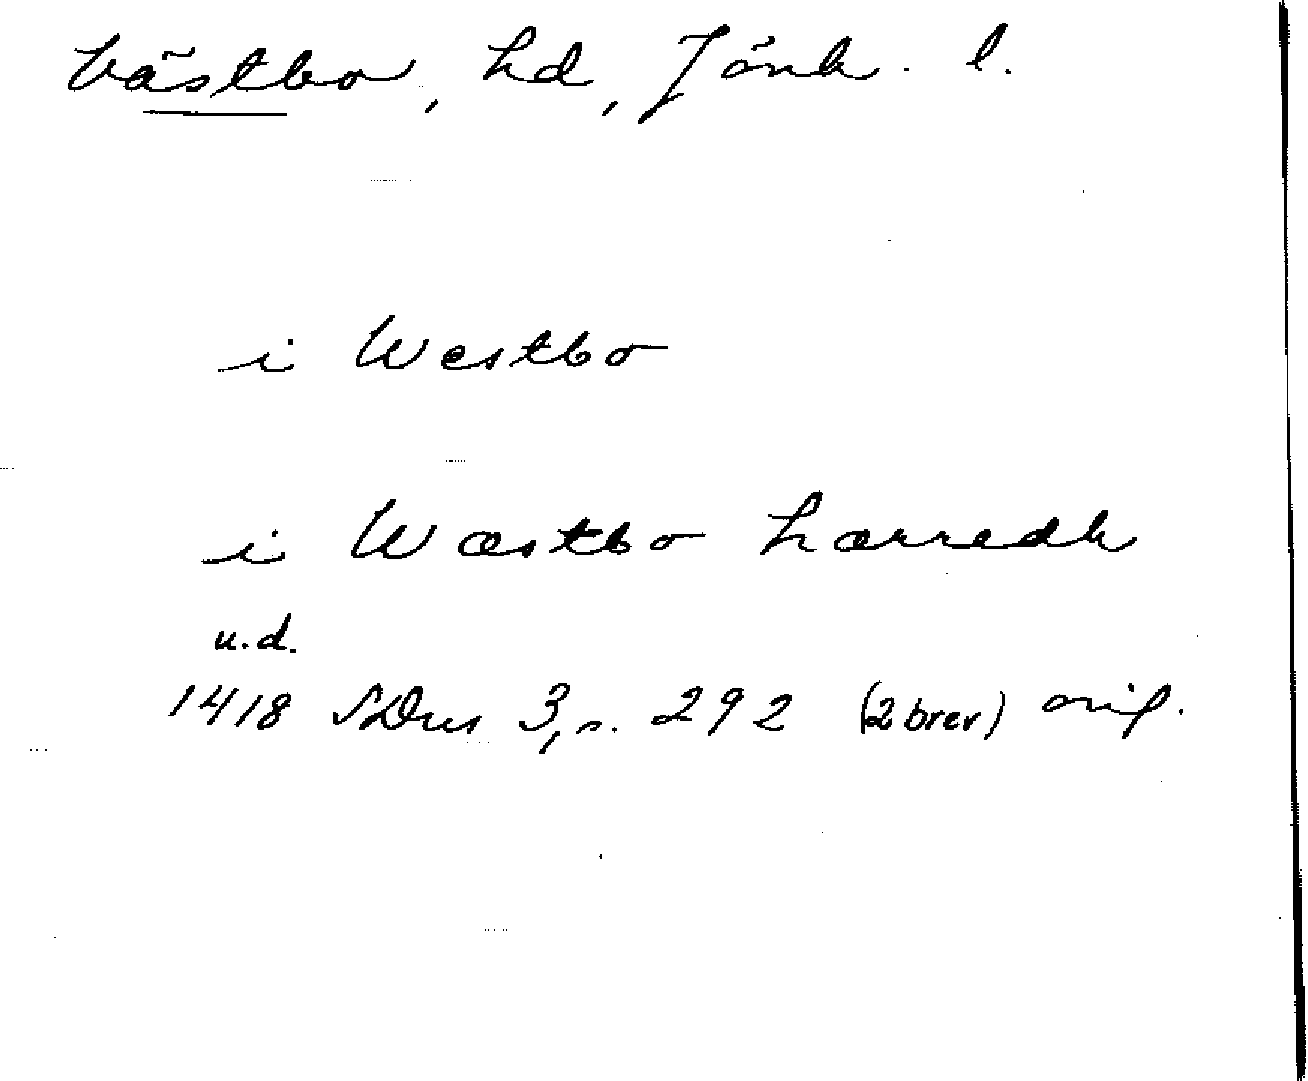 Västbo, hd, Jönk. l.
i Westbo
i Wæstbo hærredh
u.d.
1418 SDns 3, s. 292 (2 brev) orig.